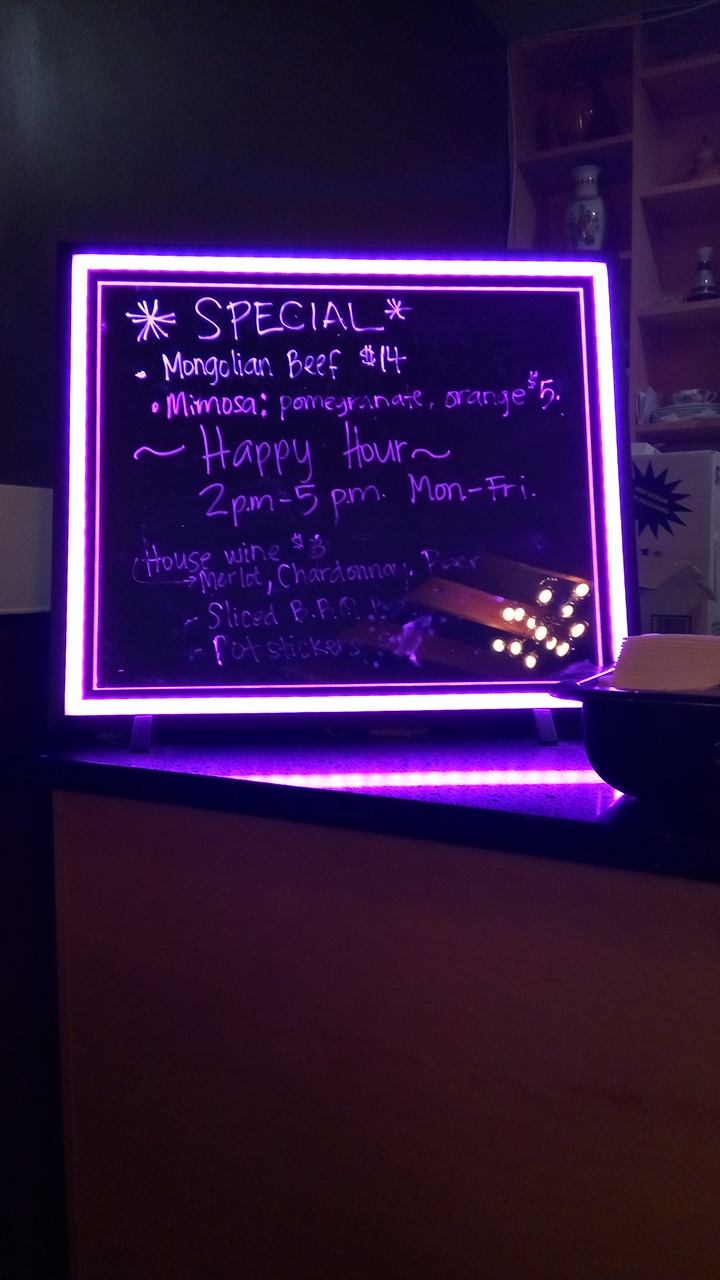 * SPECIAL *
• Mongolian Beef $14
• Mimosa: pomegranate, orange $5.
~ Happy Hour ~
2pm-5 pm. Mon-Fri.
House wine $3
→ Merlot, Chardonnay,
- Sliced B.B.Q
- Pot stickers